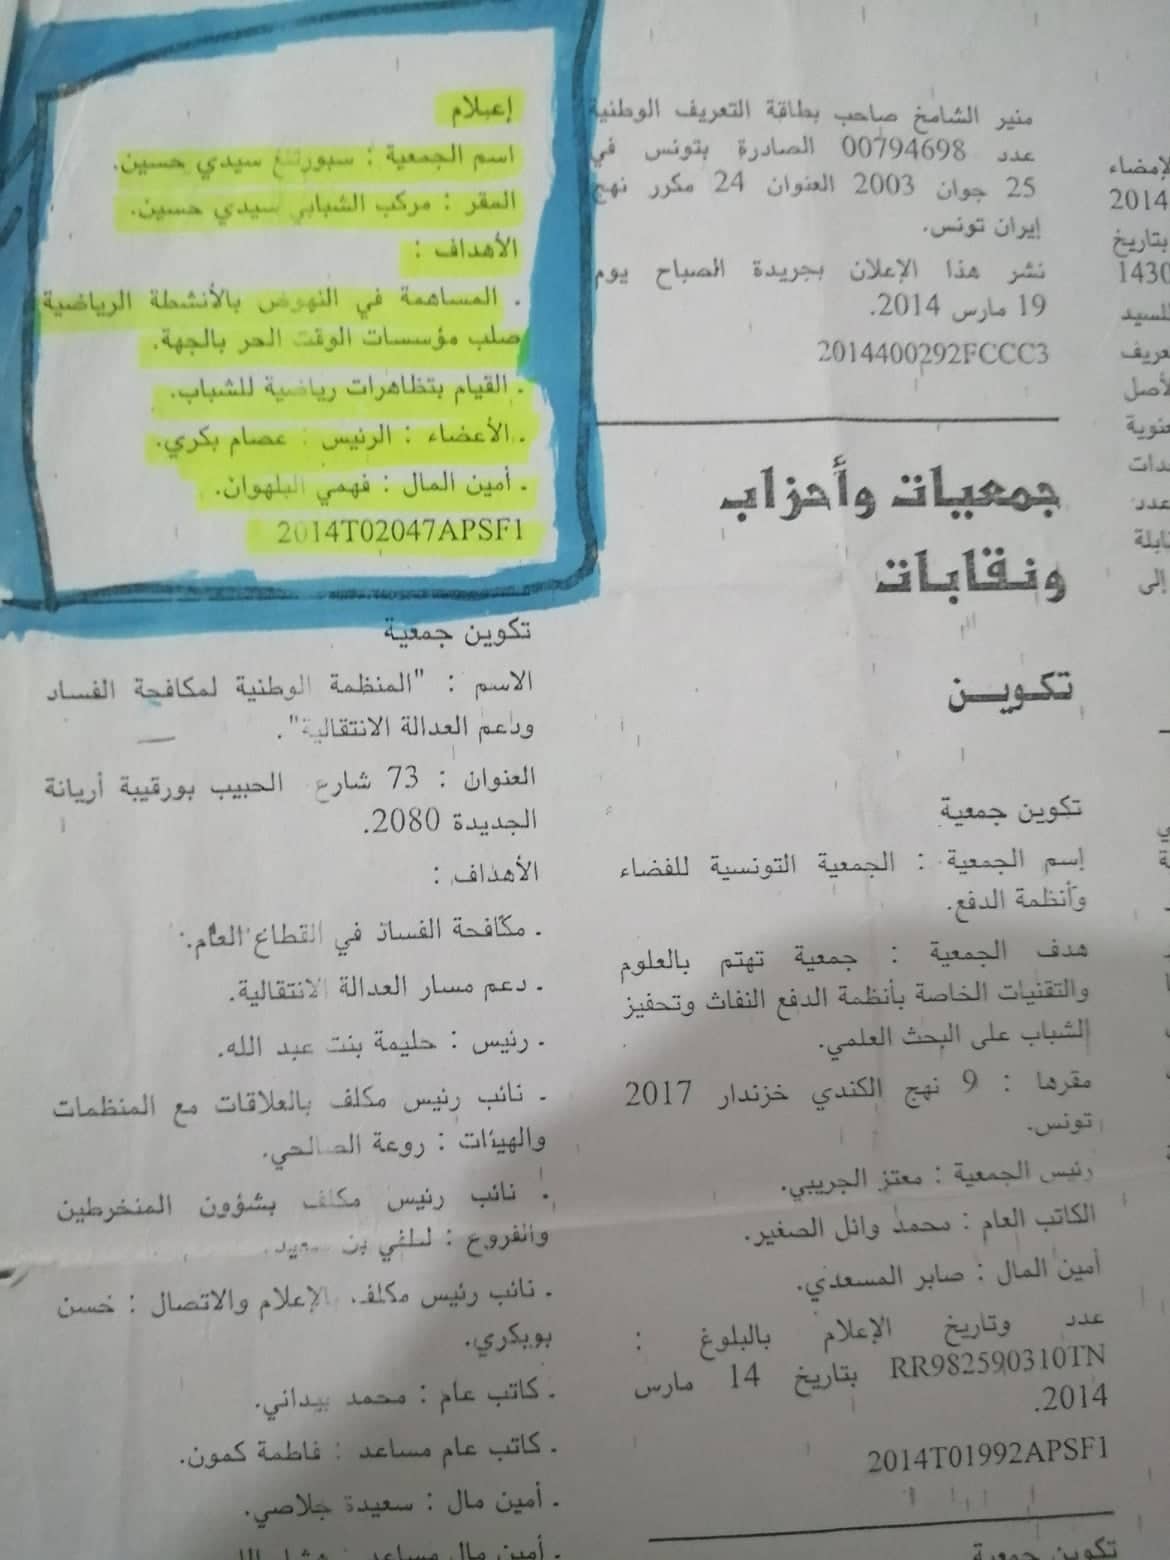 منير الشامخ صاحب بطاقة التعريف الوطنية
عدد 00794698 الصادرة بتونس في
25 جوان 2003 العنوان 24 مكرر نهج
إيران تونس.
نشر هذا الإعلان بجريدة الصباح يوم
19 مارس 2014.
2014400292FCCC3
جمعيات وأحزاب
ونقابات
تكوين
تكوين جمعية
إسم الجمعية : الجمعية التونسية للفضاء
وأنظمة الدفع.
هدف الجمعية : جمعية تهتم بالعلوم
والتقنيات الخاصة بأنظمة الدفع النفاث وتحفيز
الشباب على البحث العلمي.
مقرها : 9 نهج الكندي خزندار 2017
تونس.
رئيس الجمعية : معتز الجريبي.
الكاتب العام : محمد وائل الصغير.
أمين المال : صابر المسعدي.
عدد وتاريخ الإعلام بالبلوغ :
RR982590310TN بتاريخ 14 مارس
2014.
2014T01992APSF1
تكوين جمعية
إعلام
اسم الجمعية : سبورتنغ سيدي حسين.
المقر : مركب الشبابي سيدي حسين.
الأهداف :
. المساهمة في النهوض بالأنشطة الرياضية
صلب مؤسسات الوقت الحر بالجهة.
. القيام بتظاهرات رياضية للشباب.
. الأعضاء : الرئيس : عصام بكري.
. أمين المال : فهمي البلهوان.
2014T02047APSF1
تكوين جمعية
الاسم : "المنظمة الوطنية لمكافحة الفساد
ودعم العدالة الانتقالية".
العنوان : 73 شارع الحبيب بورقيبة أريانة
الجديدة 2080.
الأهداف :
. مكافحة الفساد في القطاع العام.
. دعم مسار العدالة الانتقالية.
. رئيس : حليمة بنت عبد الله.
. نائب رئيس مكلف بالعلاقات مع المنظمات
والهيئات : روعة الصالحي.
. نائب رئيس مكلف بشؤون المنخرطين
والفروع : بن سعيد.
. نائب رئيس مكلف بالإعلام والاتصال : حسن
بوبكري.
. كاتب عام : محمد بيداني.
. كاتب عام مساعد : فاطمة كمون.
. أمين مال : سعيدة جلاصي.
. أمين مال مساعد :
الإمضاء
2014
بتاريخ
1430
للسيد
الأصل
عدد
إلى